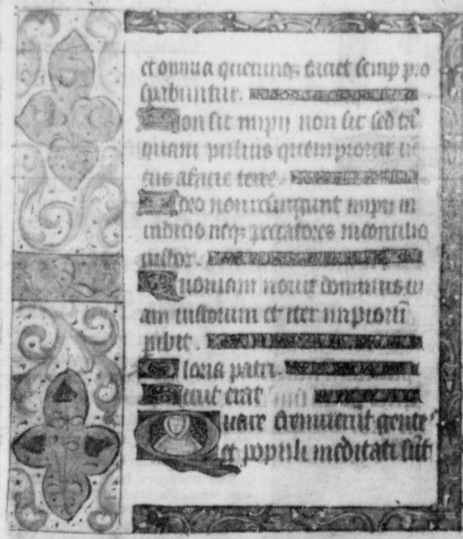 et omnia quecunq; faciet semp pro
spabuntur.
Non sic impii non sic sed tā
quam pulvis quem proicit ve
tus a facie terre.
Ideo non resurgunt impii in
iudicio neq; peccatores in consilio
iustor.
Quoniam novit dominus vi
am iustorum et iter impiorū
pibit.
Gloria patri.
Sicut erat
Quare fremuerūt gente
et populi meditati sūt